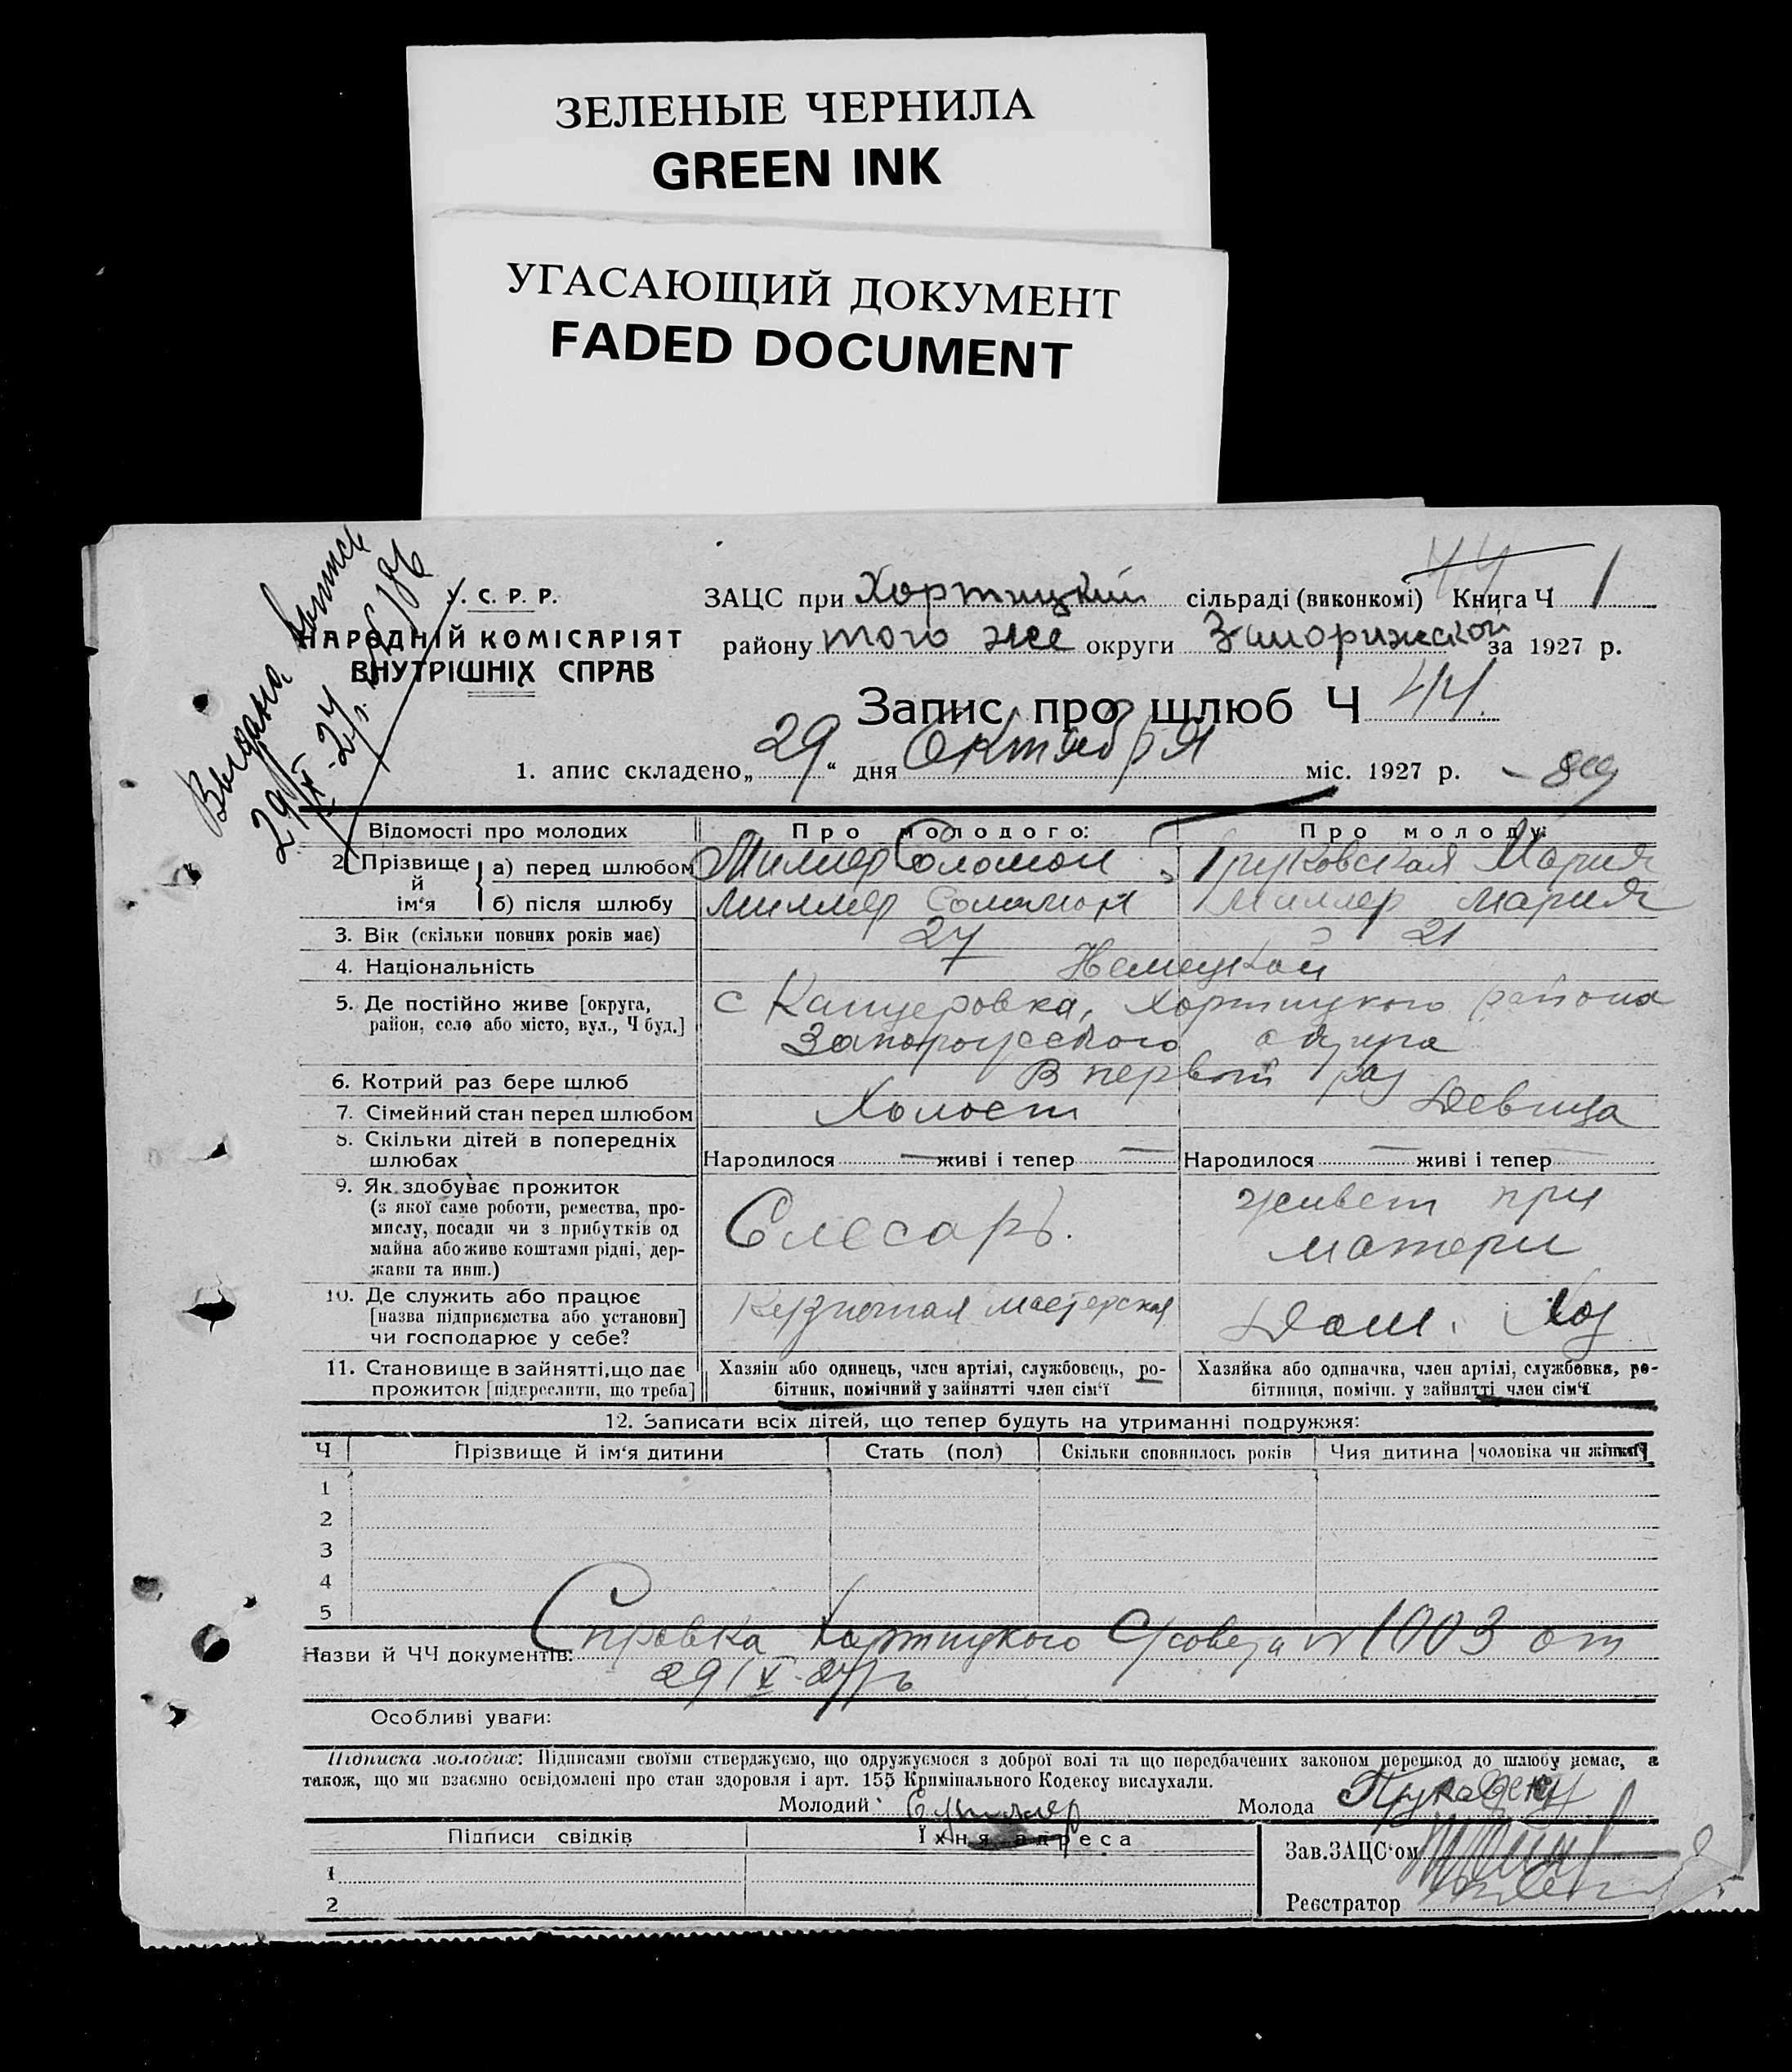 ЗЕЛЕНЫЕ ЧЕРНИЛА
GREEN INK
УГАСАЮЩИЙ ДОКУМЕНТ
FADED DOCUMENT
Выдана выпись
29/XI-27 г.
44
У. С. Р. Р.
НАРОДНІЙ КОМІСАРІЯТ
ВНУТРІШНІХ СПРАВ
ЗАЦС при Хортицкий сільраді (виконкомі) Книга Ч 1
району того же округи Запорижской за 1927 р.
Запис про шлюб Ч 44.
1. апис складено „29“ дня Октября міс. 1927 р.
Відомості про молодих Про молодого: Про молоду:
2. Прізвище й ім‘я а) перед шлюбом Миллер Соломон Мария
б) після шлюбу Миллер Соломон Миллер Мария
3. Вік (скільки повних років має) 27 21
4. Національність Немецкой
5. Де постійно живе [округа, с Канцеровка, Хортицкого района
район, село або місто, вул., Ч буд.] Запорожского округа
6. Котрий раз бере шлюб В первый раз
7. Сімейний стан перед шлюбом Холост Девица
8. Скільки дітей в попередніх
шлюбах Народилося — живі і тепер — Народилося — живі і тепер —
9. Як здобуває прожиток
(з якої саме роботи, ремества, про-
мислу, посади чи з прибутків од
майна або живе коштами рідні, дер-
жави та инш.)
Слесарь.
живет при
матери
10. Де служить або працює
[назва підприємства або установи]
чи господарює у себе?
Кузнечная мастерская
Дом. Хоз
11. Становище в зайнятті, що дає
прожиток [підкреслити, що треба]
Хазяїн або одинець, член артілі, службовець, ро-
бітник, помічний у зайнятті член сім‘ї
Хазяйка або одиначка, член артілі, службовка, ро-
бітниця, помічн. у зайнятті член сім‘ї
12. Записати всіх дітей, що тепер будуть на утриманні подружжя:
Ч Прізвище й ім‘я дитини Стать (пол) Скільки сповнилось років Чия дитина [чоловіка чи жінки]
1
2
3
4
5
Назви й ЧЧ документів: Справка Хортицкого С/совета № 1003 от
29/X-27 г
Особливі уваги:
Підписка молодих: Підписами своїми стверджуємо, що одружуємося з доброї волі та що передбачених законом перешкод до шлюбу немає, а
також, що ми взаємно освідомлені про стан здоровля і арт. 155 Кримінального Кодексу вислухали.
Молодий СМиллер Молода
Підписи свідків Їхня адреса
Зав. ЗАЦС‘ом
1
2
Реєстратор